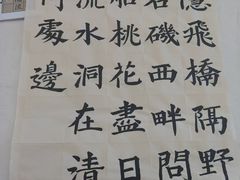 隱飛橋隔野
石磯西畔問
船桃花盡日
流水洞在清
何處邊